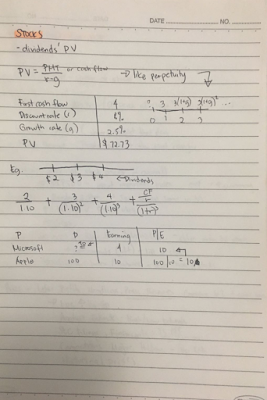 DATE NO.
STOCKS
- dividends' PV
PV = PMT / r-g or cash flow → like perpetuity
First cash flow 4
Discount rate (r) 8%
Growth rate (g) 2.5%
PV $72.73
3 3(1+g) 3(1+g)² ...
0 1 2 3
Eg.
$2 $3 $4 ← Dividends
2/1.10 + 3/(1.10)² + 4/(1.10)³ + CF/r/(1+r)³
P D Earning P/E
Microsoft 4 10
Apple 100 10 100/10 = 10